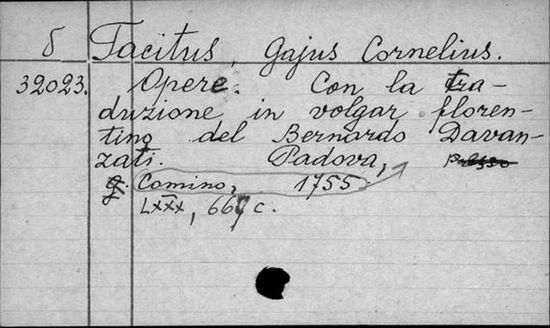 δ Tacitus, Gajus Cornelius.
32023. Opere. Con la tra-
duzione in volgar floren-
tino del Bernardo Davan-
zati. Padova, presso
g. Comino, 1755.
LXXX, 667 c.